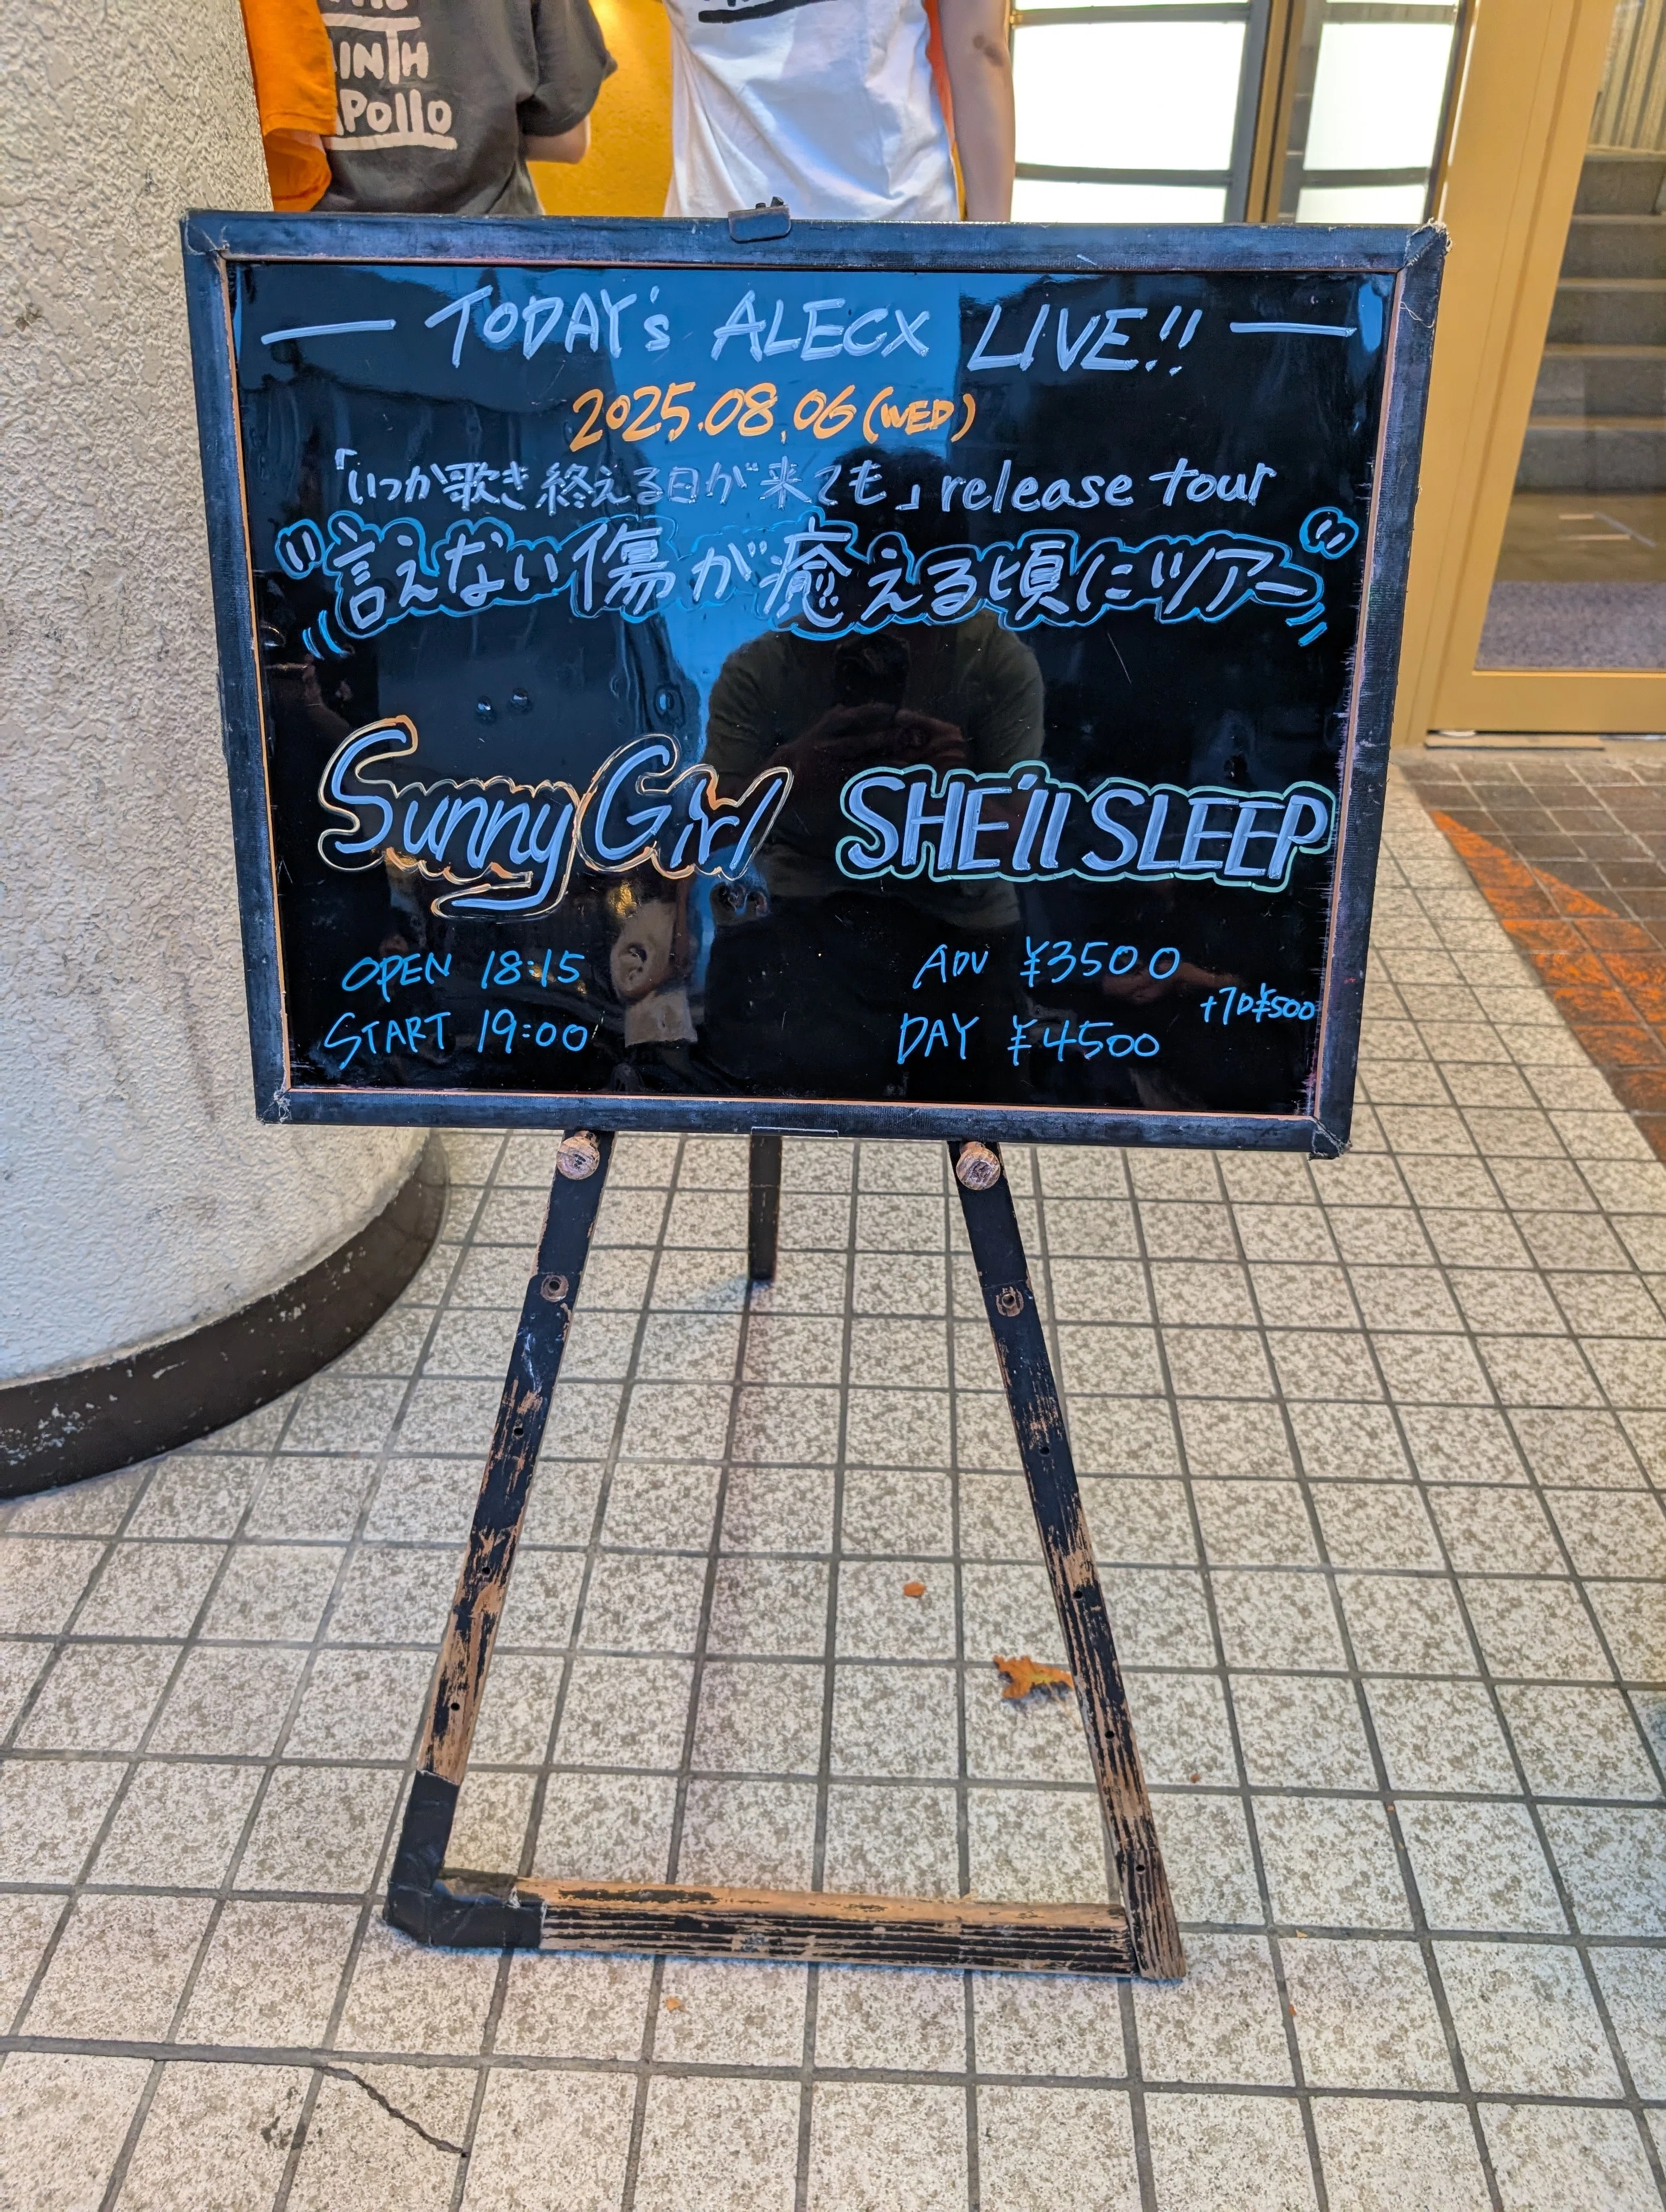 INTH
APOLLO
TODAY's ALECX LIVE!!
2025.08.06 (WED)
「いつか歌き終える日が来ても」release tour
"言えない傷が癒える頃にツアー"
Sunny Girl
SHE'll SLEEP
OPEN 18:15
START 19:00
ADV ¥3500
DAY ¥4500
+1D¥500